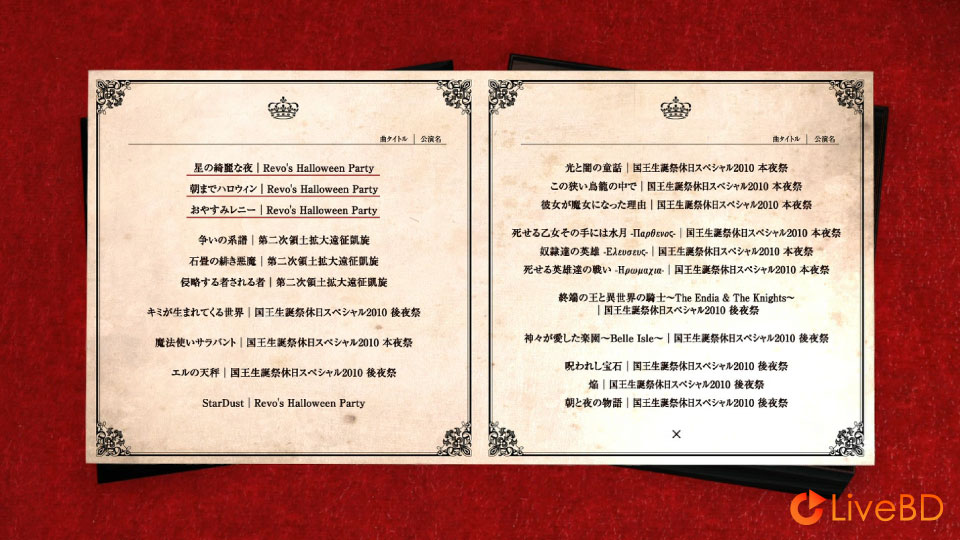 曲タイトル | 公演名
星の綺麗な夜 | Revo's Halloween Party
朝までハロウィン | Revo's Halloween Party
おやすみレニー | Revo's Halloween Party
争いの系譜 | 第二次領土拡大遠征凱旋
石畳の緋き悪魔 | 第二次領土拡大遠征凱旋
侵略する者される者 | 第二次領土拡大遠征凱旋
キミが生まれてくる世界 | 国王生誕祭休日スペシャル2010 後夜祭
魔法使いサラバント | 国王生誕祭休日スペシャル2010 本夜祭
エルの天秤 | 国王生誕祭休日スペシャル2010 後夜祭
StarDust | Revo's Halloween Party
曲タイトル | 公演名
光と闇の童話 | 国王生誕祭休日スペシャル2010 本夜祭
この狭い鳥籠の中で | 国王生誕祭休日スペシャル2010 本夜祭
彼女が魔女になった理由 | 国王生誕祭休日スペシャル2010 本夜祭
死せる乙女その手には水月 -Παρθενος- | 国王生誕祭休日スペシャル2010 本夜祭
奴隷達の英雄 -Ελευσευς- | 国王生誕祭休日スペシャル2010 本夜祭
死せる英雄達の戦い -Ηρωμαχια- | 国王生誕祭休日スペシャル2010 本夜祭
終端の王と異世界の騎士～The Endia & The Knights～
| 国王生誕祭休日スペシャル2010 後夜祭
神々が愛した楽園～Belle Isle～ | 国王生誕祭休日スペシャル2010 後夜祭
呪われし宝石 | 国王生誕祭休日スペシャル2010 後夜祭
焔 | 国王生誕祭休日スペシャル2010 後夜祭
朝と夜の物語 | 国王生誕祭休日スペシャル2010 後夜祭
×
LiveBD